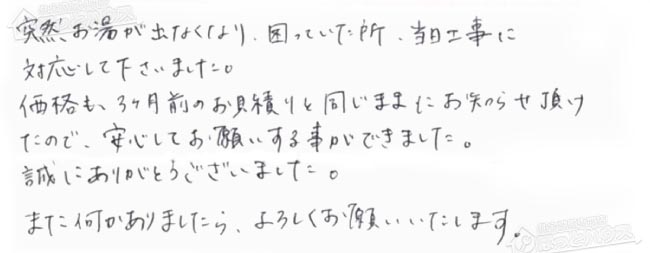 突然、お湯が出なくなり、困っていた所、当日工事に
対応して下さいました。
価格も、3ヶ月前のお見積りと同じままにお知らせ頂け
たので、安心してお願いする事ができました。
誠にありがとうございました。
また何かありましたら、よろしくお願いいたします。